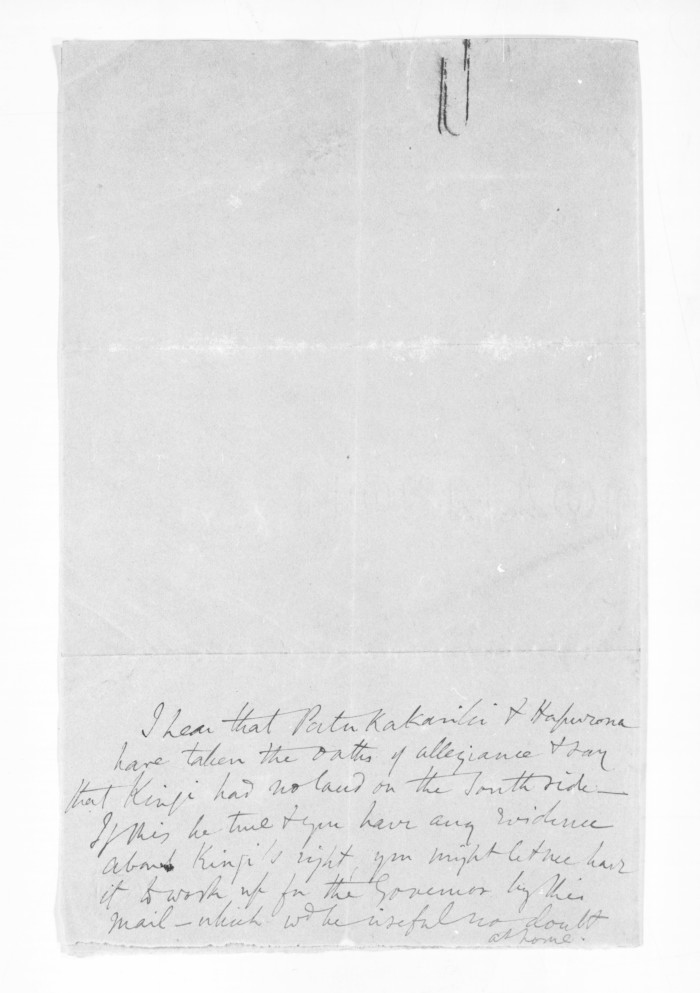 I hear that Patukakariki & Hapurona
have taken the oaths of allegiance & say
that Kingi had no land on the South side —
If this be true & you have any evidence
about Kingi's right, you might let me have
it to work up for the Governor by this
mail — which wd be useful no doubt
at home.